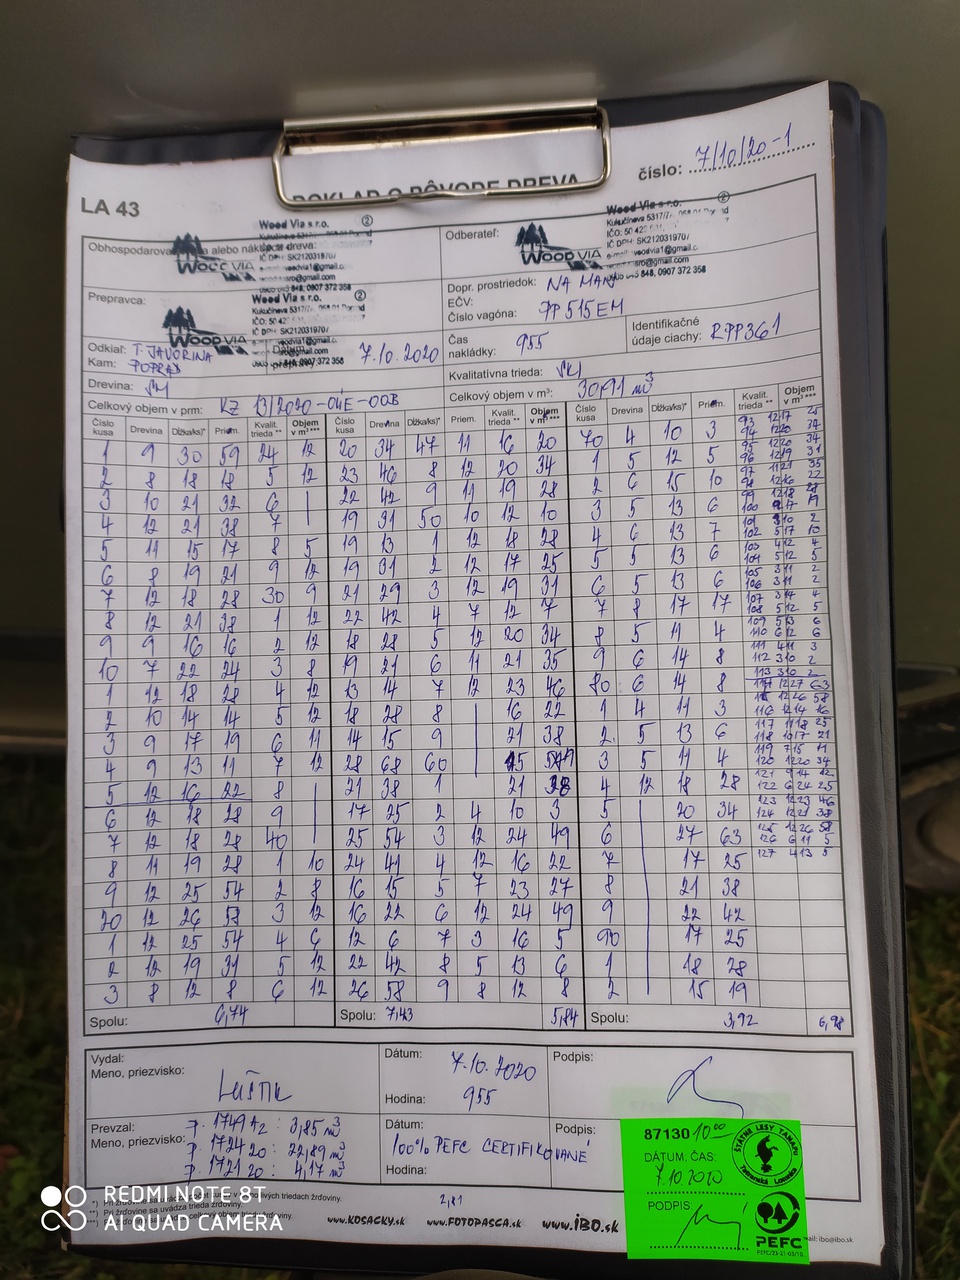 DOKLAD O PÔVODE DREVA
číslo: 7/10/20-1
LA 43
Wood Via s.r.o. ②
IČ DPH: SK2120319707
WOOD VIA
Odberateľ:
Wood Via s.r.o. ②
IČ DPH: SK2120319707
WOOD VIA
048, 0907 372 358
Prepravca:
Wood Via s.r.o. ②
IČ DPH: SK2120319707
WOOD VIA
0907 372 358
Dopr. prostriedok: NA MAN
EČV: PP 515 EM
Číslo vagóna:
Odkiaľ: T. JAVORINA
Kam: POPRAD
Dátum
7.10.2020
Čas
nakládky: 955
Identifikačné
údaje ciachy: RPP361
Drevina: SM
Kvalitatívna trieda:
Celkový objem v prm: KZ 13/2020-04E-00B
Celkový objem v m³: 30,91 m³
Číslo kusa Drevina Dĺžka/ks)* Priem. Kvalit. trieda ** Objem v m³ ***
Číslo kusa Drevina Dĺžka/ks)* Priem. Kvalit. trieda ** Objem v m³ ***
1 9 30 59 24 12 20 34 47 11 16 20 70 4 10 3
2 8 18 18 5 12 23 46 8 12 20 34 1 5 12 5
3 10 21 32 6 22 42 9 11 19 28 2 6 15 10
4 12 21 38 7 19 31 50 10 12 10 3 5 13 6
5 11 15 17 8 5 19 13 1 12 18 28 4 6 13 7
6 8 19 21 9 12 19 31 2 12 17 25 5 5 13 6
7 12 18 28 30 9 21 29 3 12 19 31 6 5 13 6
8 12 21 38 1 12 22 42 4 7 12 7 7 8 17 17
9 9 16 16 2 12 18 28 5 12 20 34 8 5 11 4
10 7 22 24 3 8 19 21 6 11 21 35 9 6 14 8
1 12 18 28 4 12 13 14 7 12 23 46 80 6 14 8
2 10 14 14 5 12 18 28 8 16 22 1 4 11 3
3 9 17 19 6 11 14 15 9 21 38 2 5 13 6
4 9 13 11 7 12 28 68 60 3 5 11 4
5 12 16 22 8 21 38 1 21 38 4 12 18 28
6 12 18 28 9 17 25 2 4 10 3 5 20 34
7 12 18 28 40 25 54 3 12 24 49 6 27 63
8 11 19 28 1 10 24 41 4 12 16 22 7 17 25
9 12 25 54 2 8 16 15 5 7 23 27 8 21 38
20 12 26 58 3 12 16 22 6 12 24 49 9 22 42
1 12 25 54 4 6 12 6 7 3 16 5 90 17 25
2 12 19 31 5 12 22 42 8 5 13 6 1 18 28
3 8 12 8 6 12 26 58 9 8 12 8 2 15 19
93 12 17 25
94 12 20 34
95 12 20 34
96 12 19 31
97 11 21 35
98 12 16 22
99 12 18 28
102 5 17 10
103 4 12 4
104 5 12 5
105 3 11 2
106 3 11 2
107 3 14 4
108 5 12 5
109 5 13 6
110 6 12 6
111 4 11 3
112 3 10 2
113 3 10 2
114 12 27 63
115 12 26 58
116 12 14 16
117 11 18 25
118 10 17 21
119 7 15 11
120 12 20 34
121 9 14 12
122 6 24 25
123 12 23 46
124 12 21 38
125 12 26 58
126 6 11 5
127 4 13 5
Spolu: 6,74 Spolu: 7,43 5,84 Spolu: 3,92 6,98
Vydal:
Meno, priezvisko:
Dátum: 7.10.2020
Hodina: 955
Podpis:
Prevzal:
Meno, priezvisko:
P. 1749 12 : 3,85 m³
P. 1724 20 : 22,89 m³
P. 1721 20 : 4,17 m³
Dátum:
100% PEFC CERTIFIKOVANÉ
Hodina:
Podpis:
87130 10 00
DÁTUM, ČAS:
7.10.2020
PODPIS:
ŠTÁTNE LESY TANAPU
Tatranská Lomnica
PEFC
PEFC/23-21-03/10
2,81
www.KOSACKY.sk www.FOTOPASCA.sk www.iBO.sk
mail: ibo@ibo.sk
REDMI NOTE 8T
AI QUAD CAMERA